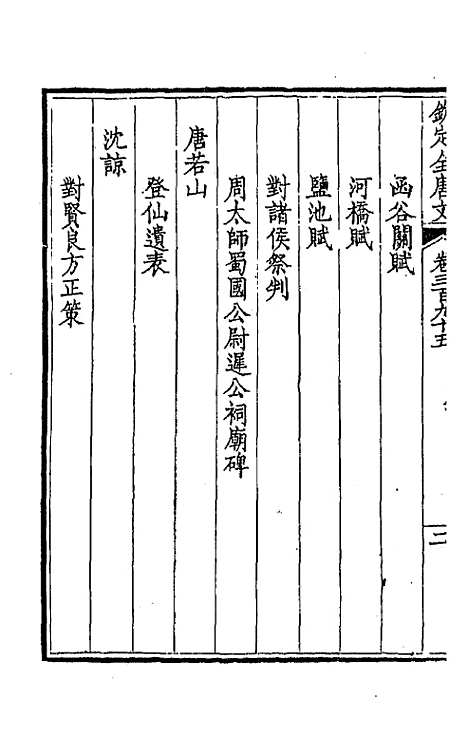 欽定全唐文 卷三百九十五 二
函谷關賦
河橋賦
鹽池賦
對諸侯祭判
周太師蜀國公尉遲公祠廟碑
唐若山
登仙遺表
沈諒
對賢良方正策